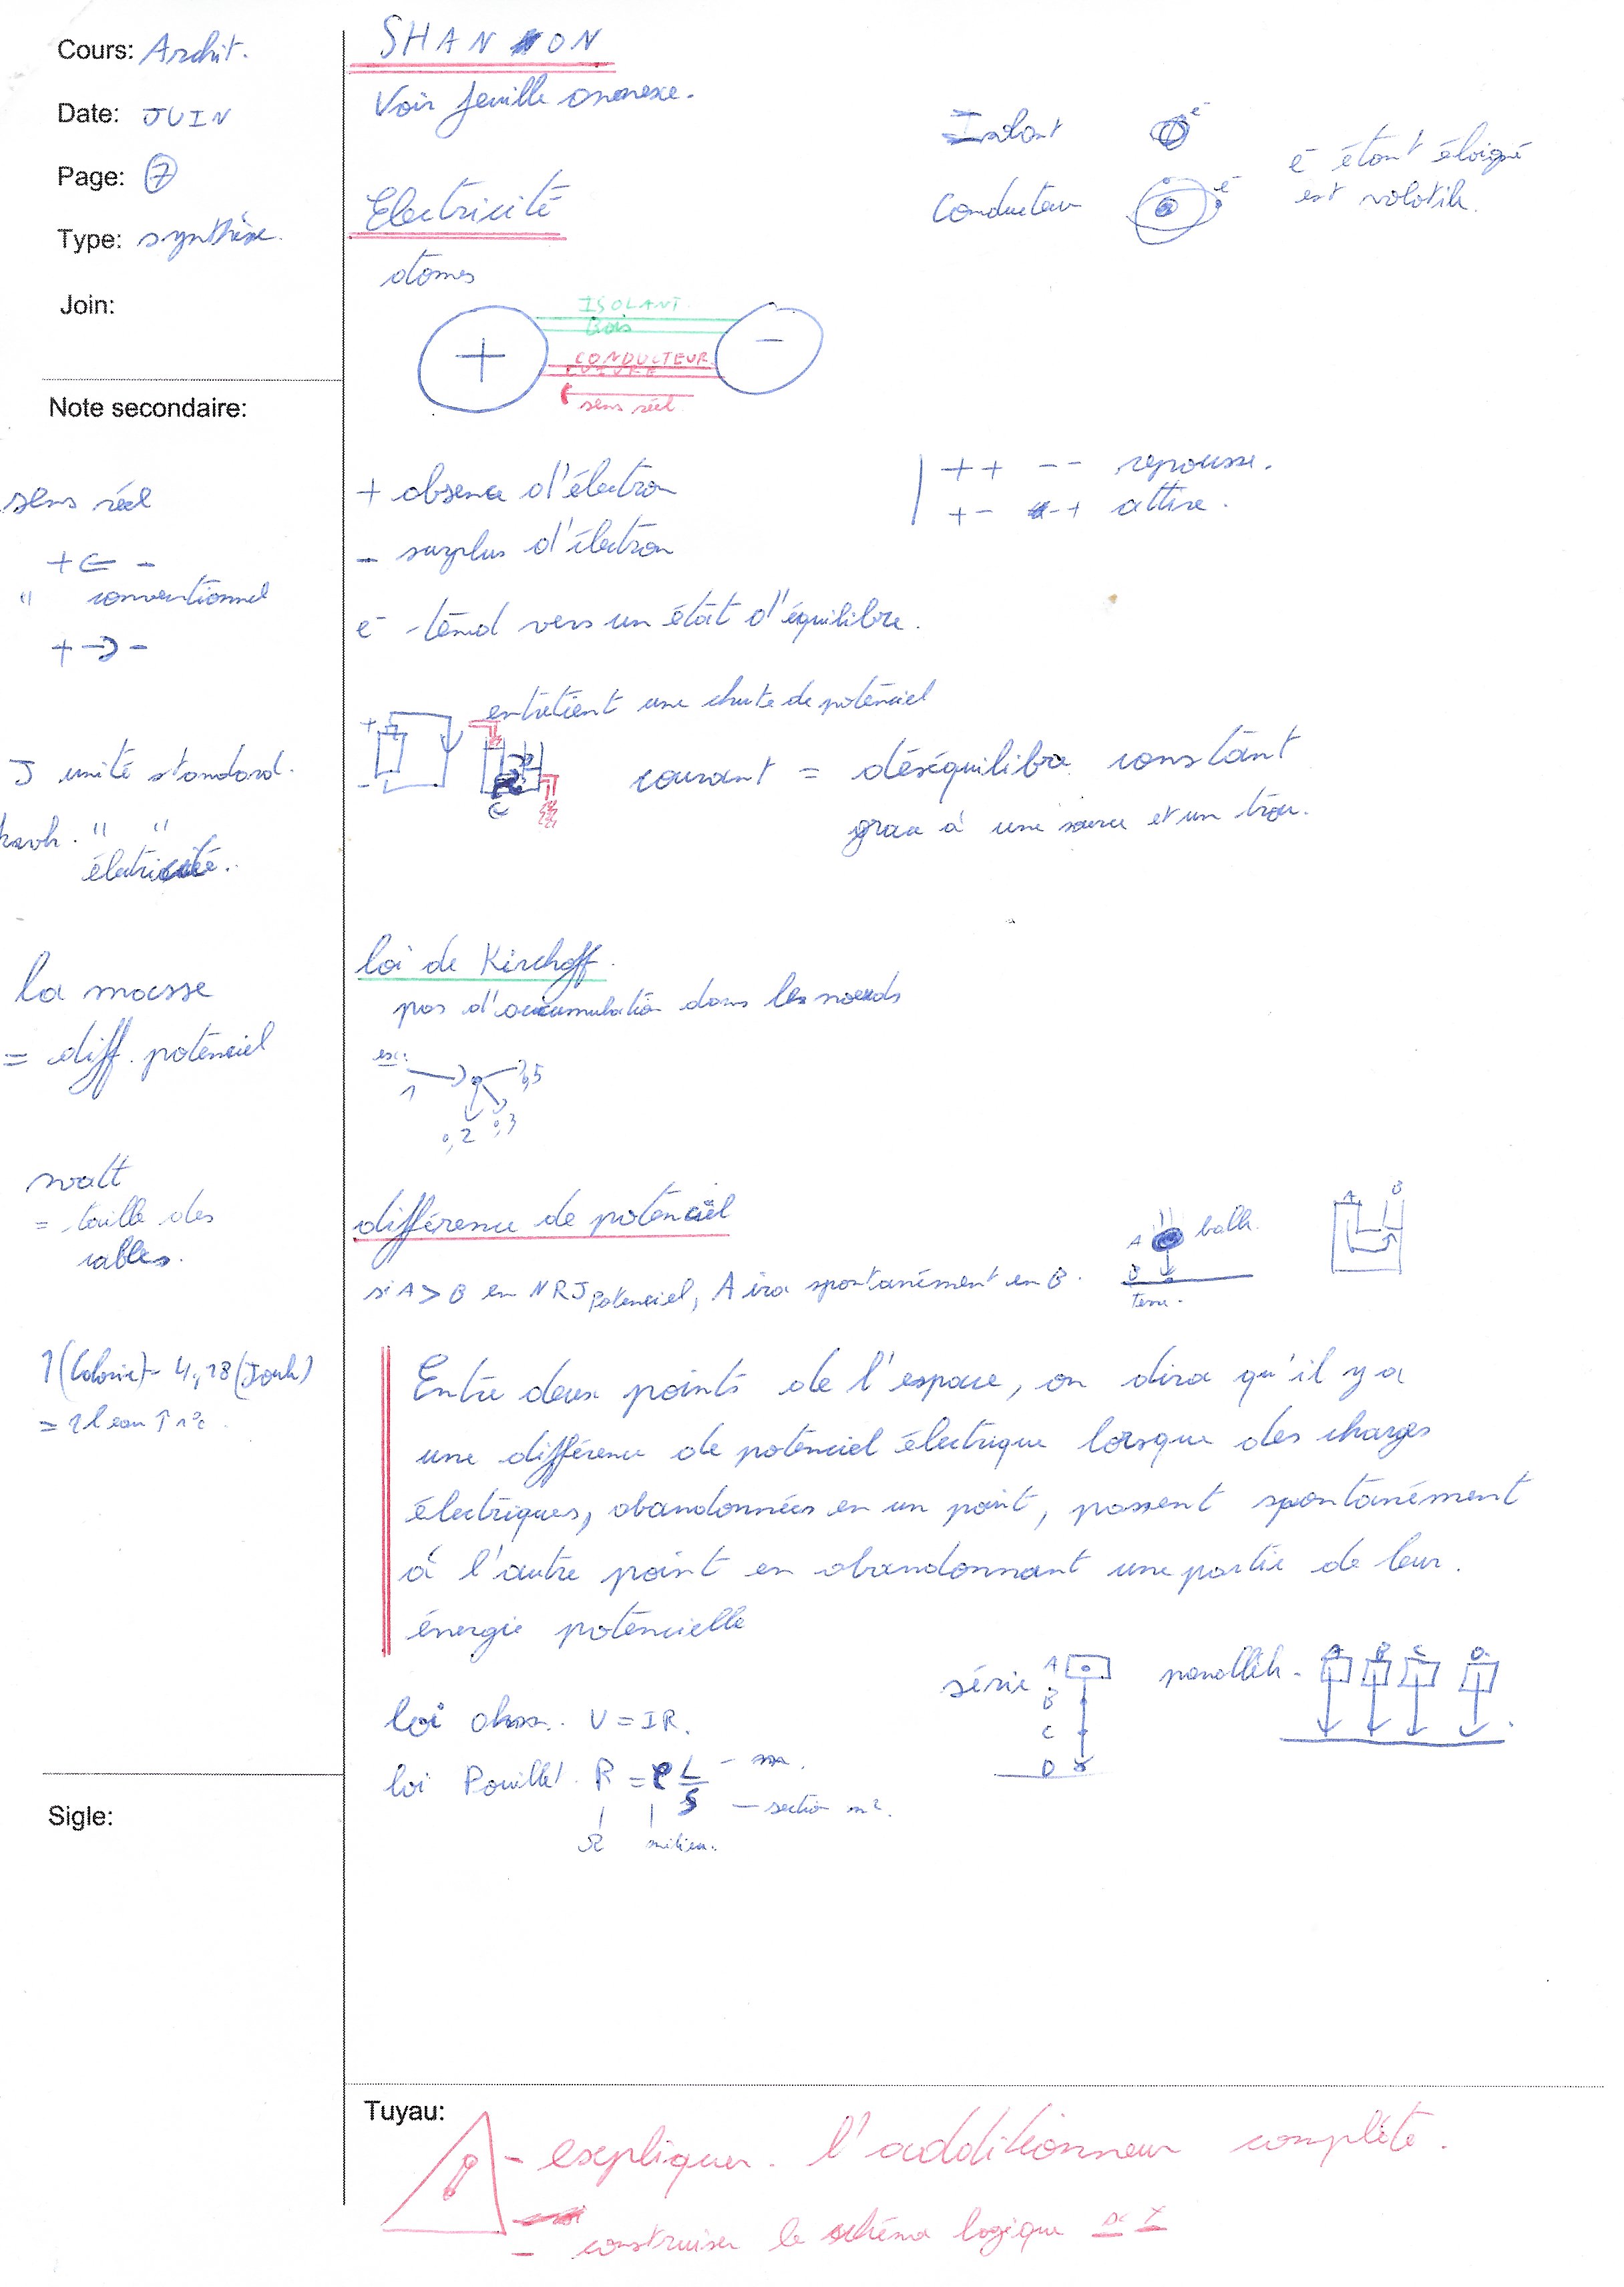 Cours: Archit.
Date: JUIN
Page: 7
Type: synthèse.
Join:
Note secondaire:
sens réel
+ ⇐ -
" conventionnel
+ → -
J unité standard.
kwh. " "
électricité.
la masse
= diff. potenciel
watt
= taille des
cables.
1 (Calorie) = 4,18 (Joule)
= 1 l eau ↑ 1°c
Sigle:
SHANNON
Voir feuille annexe.
Isolant e-
Conducteur e-
e- étant éloigné
est volatile.
Electricité
atomes
+ -
ISOLANT
Bois
CONDUCTEUR
CUIVRE
sens réel
+ absence d'électron
- surplus d'électron
++ -- repousse.
+- -+ attire.
e- tend vers un état d'équilibre.
entretient une chute de potenciel
+
-
courant = déséquilibre constant
grace à une source et un trou.
loi de Kirchoff.
pas d'accumulation dans les noeuds
ex:
1 0,5
0,2 0,3
différence de potenciel
si A > B en NRJ Potenciel, A ira spontanément en B.
A balle.
B
Terre.
A B
Entre deux points de l'espace, on dira qu'il y a
une différence de potenciel électrique lorsque des charges
électriques, abandonnées en un point, passent spontanément
à l'autre point en abandonnant une partie de leur.
énergie potencielle
série A
B
C
D
parallèle. A B C D.
loi ohm. V = IR.
loi Pouillet. R = ρ L/S - m.
- section m².
Ω milieu.
Tuyau:
- expliquer. l'additionneur complète.
- construiser le schéma logique